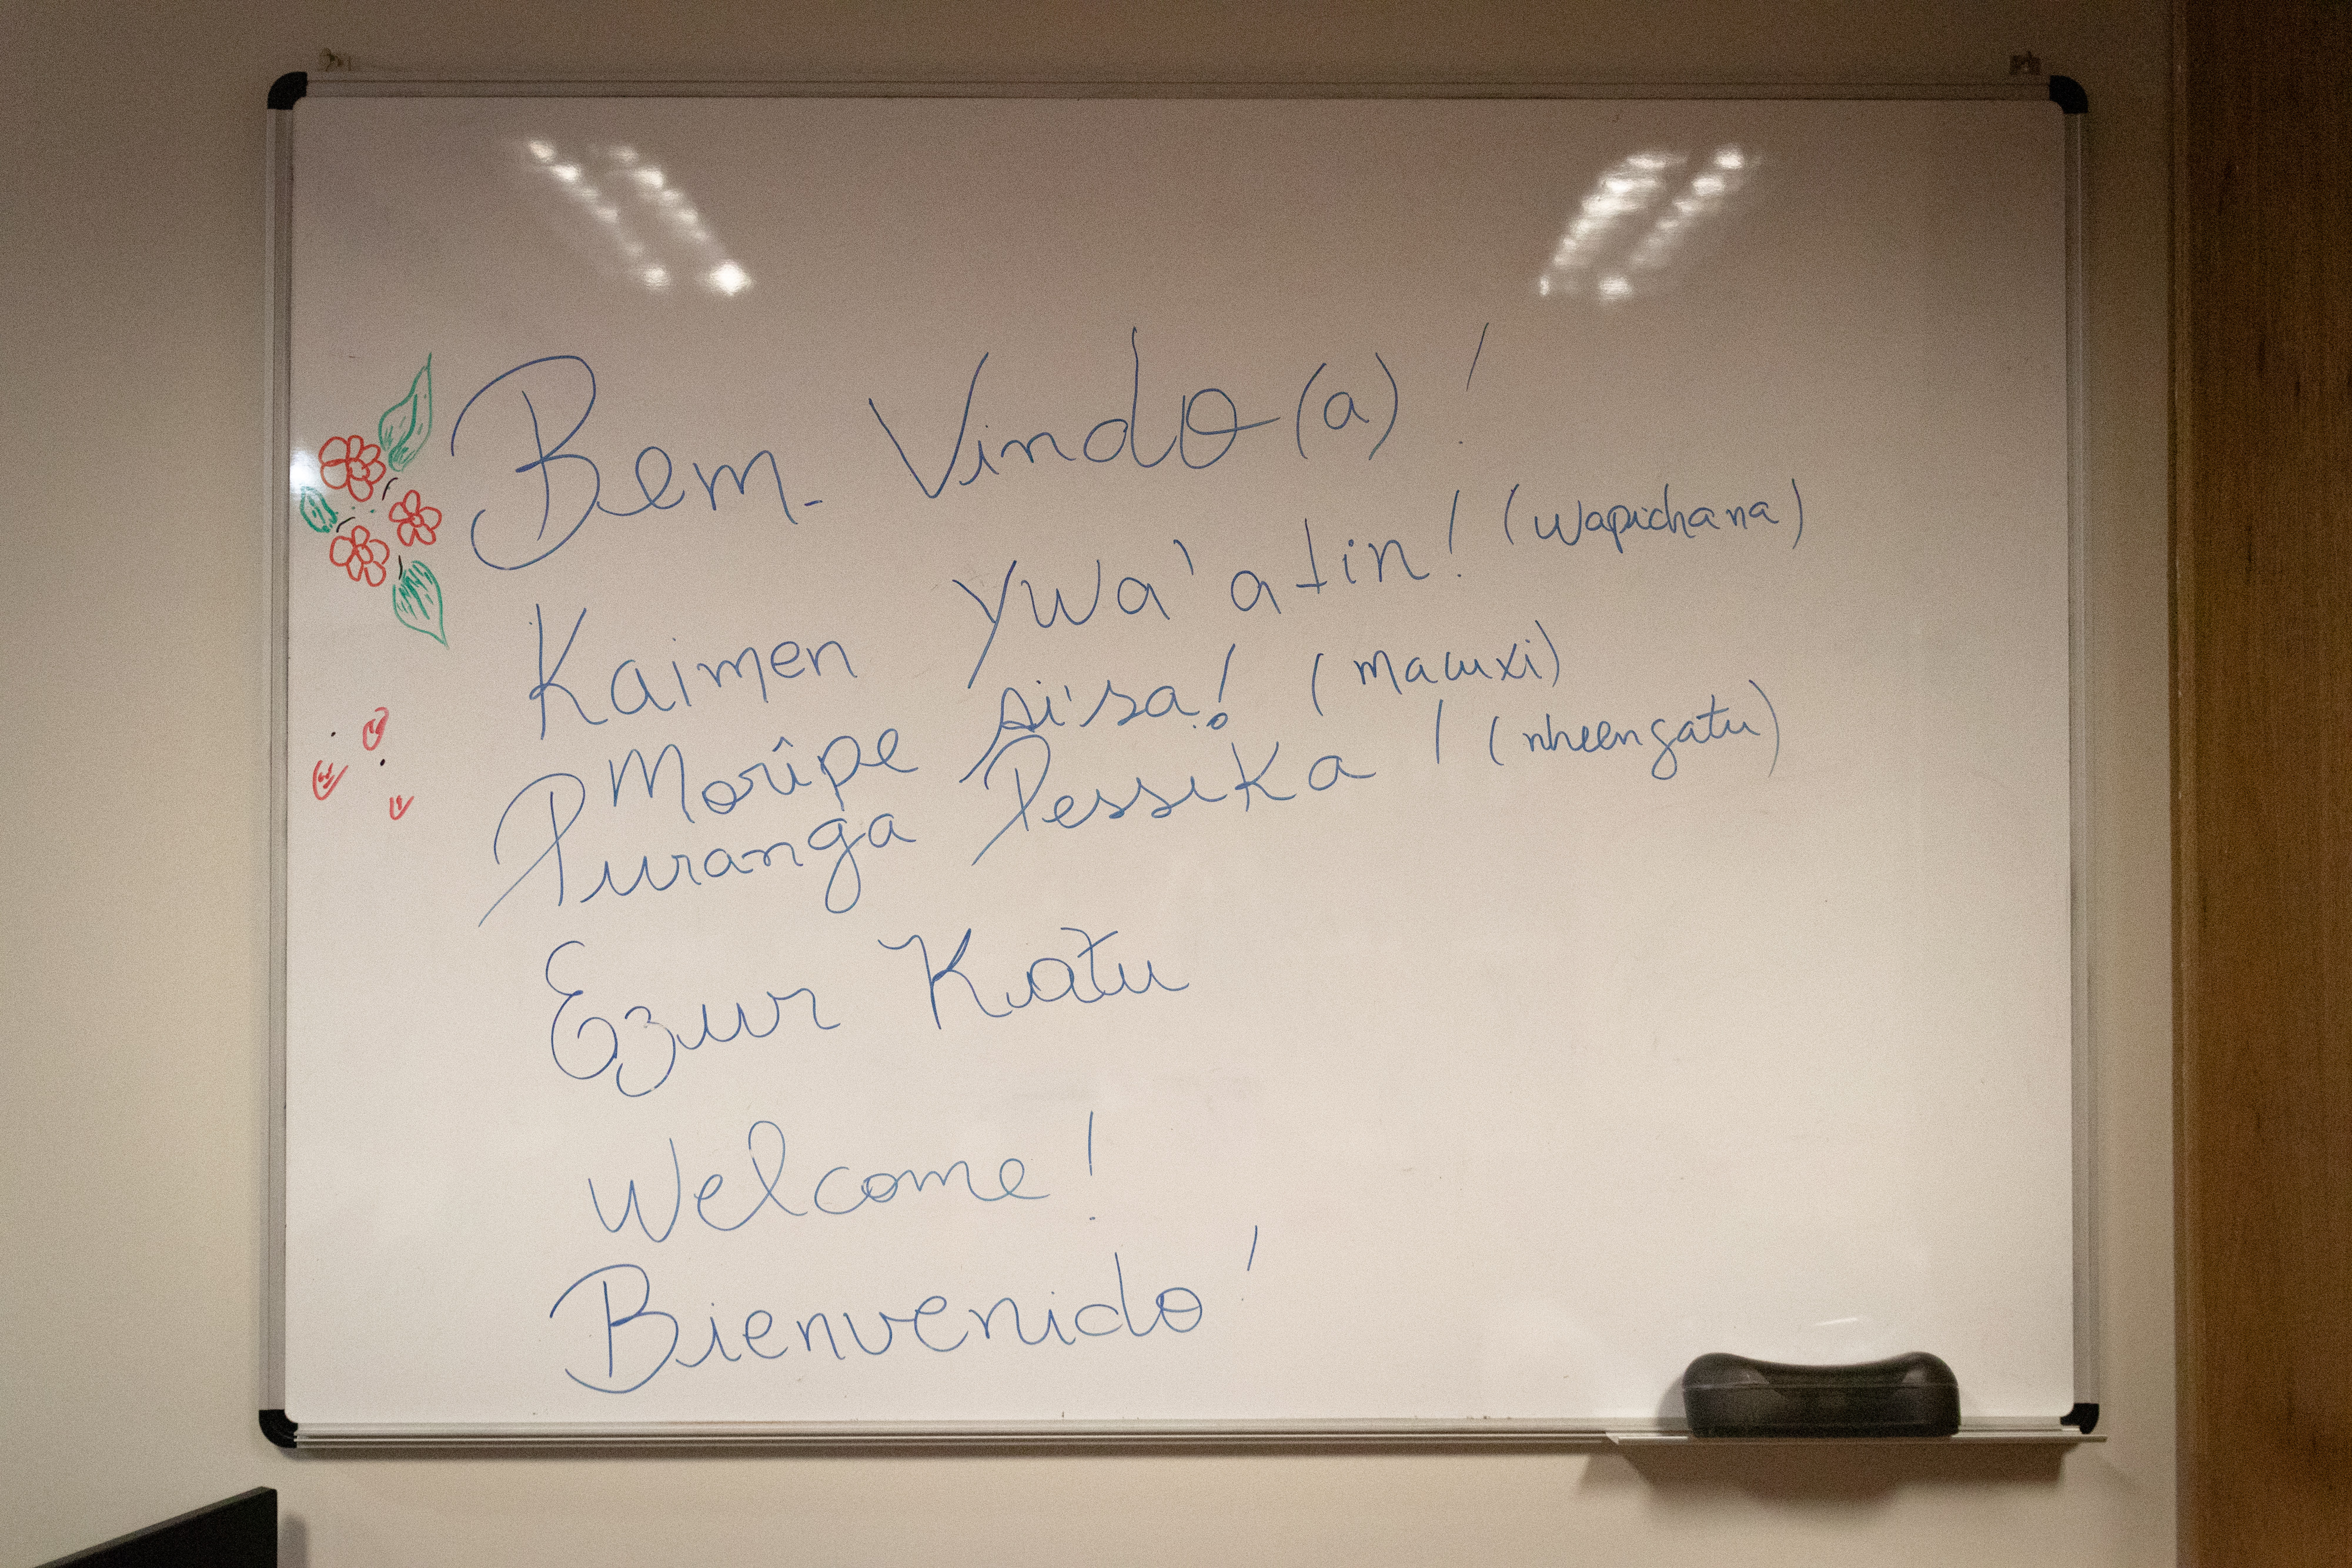 Bem-Vindo(a)!
Kaimen Ywa'atin! (wapichana)
Morîpe si'sa! (macuxi)
Puranga Pessika! (nheengatu)
Ezur Katu
Welcome!
Bienvenido!